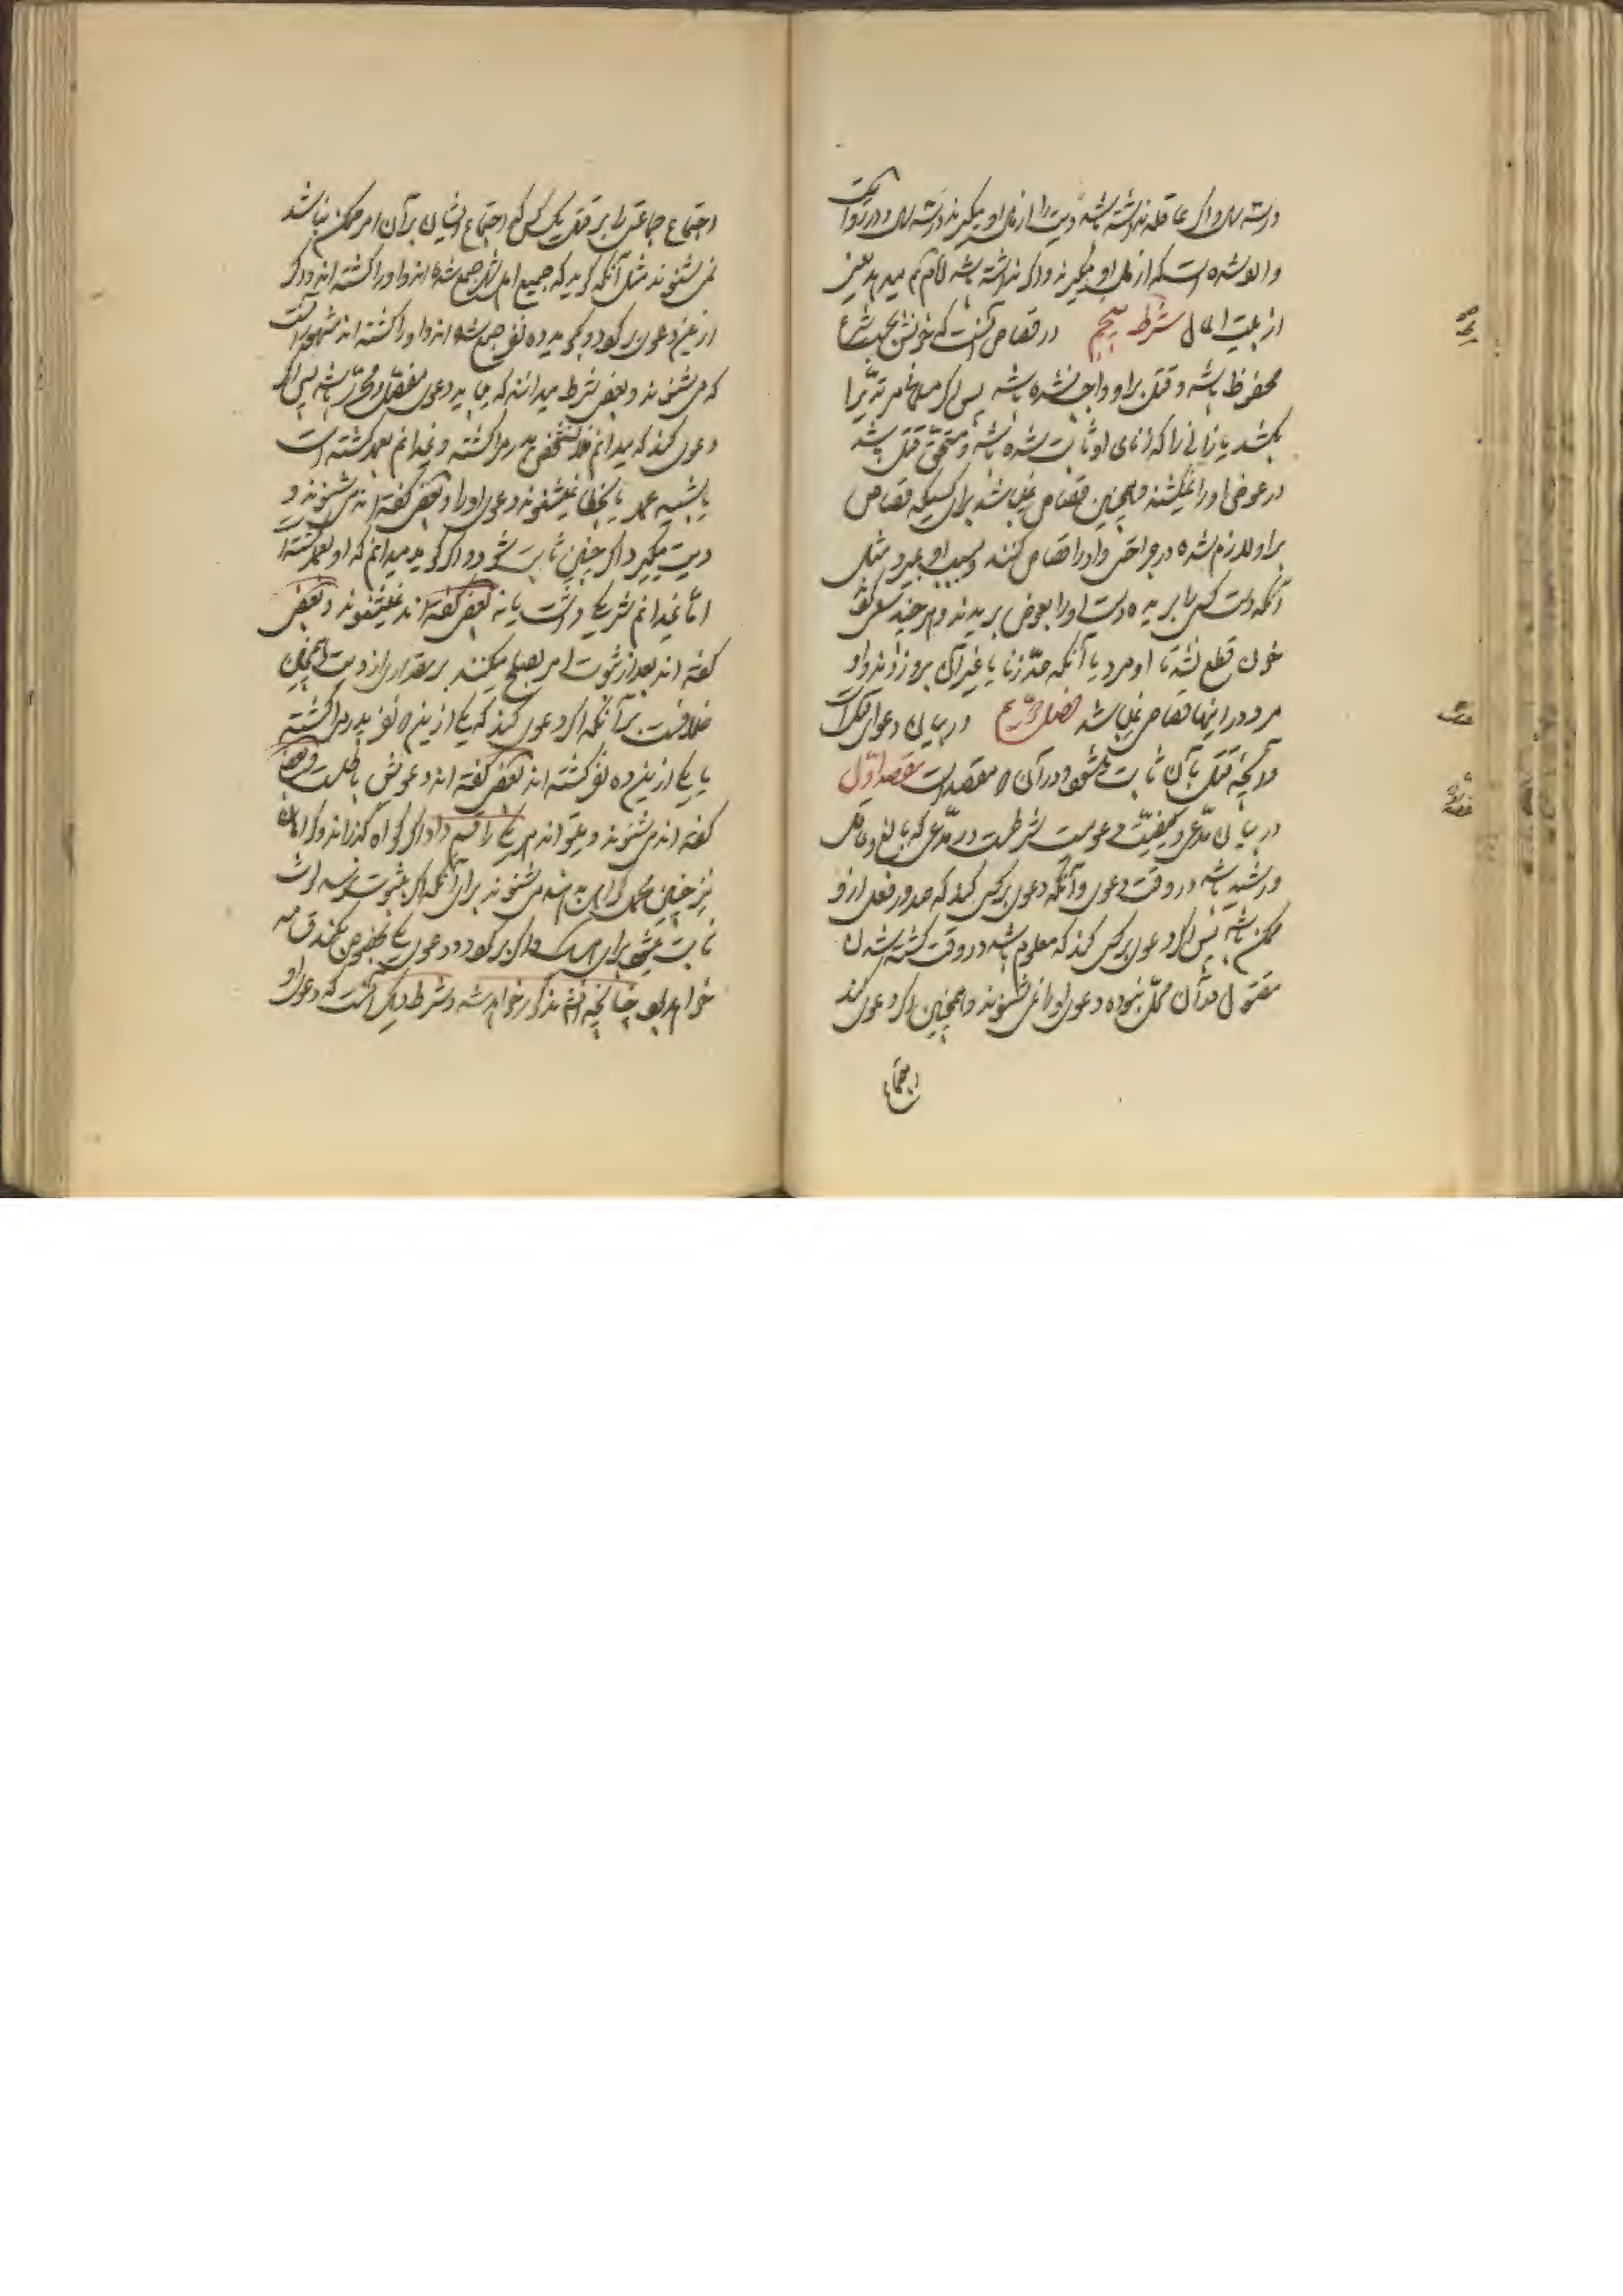 در سه سال و اگر عاقله نداشته باشد دیت را از مال او میگیرند در سه سال و در روایت
وارد شده است که از مال او میگیرند و اگر نداشته باشد امام میدهد یعنی
از بیت المال شرط پنجم در قصاص آنست که خونش بحسب شرع
محفوظ باشد و قتل بر او واجب نشده باشد پس اگر مسلمانی مرتدّیرا
بکشد یا زانی را که زنای او ثابت شده باشد و مستحقّ قتل باشد
در عوض او را نمیکشند و همچنین قصاص نمیباشد برای کسیکه قصاص
بر او لازم شده در جراحتی و او را قصاص کنند و بسبب او بمیرد مثل
آنکه دست کسی را بریده دست او را بعوض بریدند و هر چند سعی کردند
خون قطع نشد تا او مرد یا آنکه حدّ زنا یا غیر آن بر او زدند و او
مرد در اینها قصاص نمیباشد فصل در بیان دعوای قتل است
و آنچه قتل بآن ثابت میشود و در آن مقصد است مقصد اوّل
در بیان مدّعی و کیفیّت دعویست شرطست در مدّعی که بالغ و عاقل
و رشید باشد در وقت دعوی و آنکه دعوی بر کسی کند که صدور فعل از او
ممکن باشد پس اگر دعوی بر کسی کند که معلوم باشد در وقت کشته شدن
مقتول در آن محلّ نبوده دعوی او را نمی شنوند و همچنین اگر دعوی کند
اجتماع
اجتماع جماعتی را بر قتل یک کس که اجتماع ایشان بر آن امر ممکن نباشد
نمی شنوند مثل آنکه گوید که جمیع اهل شهر جمع شده اند و او را کشته اند و اگر
ازین دعوی برگردد و بگوید ده نفر جمع شده اند و او را کشته اند مشهور آنست
که می شنوند و بعضی شرط میدانند که باید دعوی مفصّل و محرّر باشد پس اگر
دعوی کند که میدانم فلان شخص پدر مرا کشته و نمیدانم بعمد کشته است
یا بشبیه عمد یا بخطا نمیشنوند دعوی او را و بعضی گفته اند می شنوند و
دیت میگیرد اگر چنین ثابت شود و اگر گوید میدانم که او بعمد کشته است
امّا نمیدانم شریکی داشت یا نه بعضی گفته اند نمیشنوند و بعضی
گفته اند بعد از ثبوت امر بصلح میکنند بر مقداری از دیت و همچنین
خلافست بر آنکه اگر دعوی کند که یکی ازین نفر پدر مرا کشته
یا یکی ازین ده نفر کشته اند بعضی گفته اند دعویش باطلست و بعضی
گفته اند می شنوند و میتواند هر یک را قسم داد و اگر گواه گذراند و گواهان
نیز چنین مجمل گواهی بدهند می شنوند برای آنکه اگر بثبوت نرسد لوث
ثابت میشود برای و اگر برگردد و دعوی یکی بخصوص بکند قسامه
خواهد بود چنانچه مذکور خواهد شد و شرط دیگر آنست که دعوی او